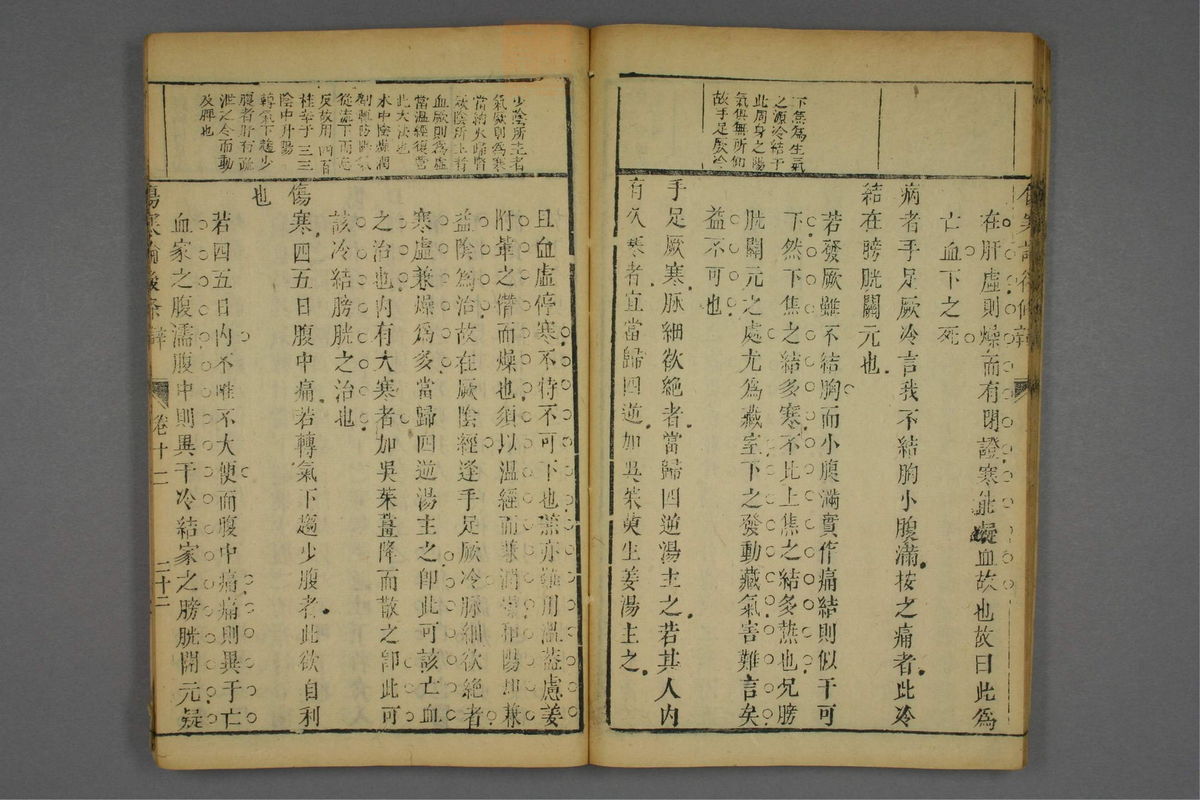 下焦為生氣
之源冷結于
此周身之陽
氣俱無所仰
故手足厥冷
在肝虛則燥而有閉證寒能凝血故也故曰此為
亡血下之死
病者手足厥冷言我不結胸小腹滿按之痛者此冷
結在膀胱關元也
若發厥雖不結胸而小腹滿實作痛結則似乎可
下然下焦之結多寒不比上焦之結多熱也况膀
胱關元之處尤為藏室下之發動藏氣害難言矣
益不可也
手足厥寒脉細欲絶者當歸四逆湯主之若其人內
有久寒者宜當歸四逆加吳茱萸生姜湯主之
少陰所主者
氣厥則為寒
當納火歸腎
厥陰所主者
血厥則為虛
當溫經復營
此大法也
從
反故用四百
桂辛于三三
陰中升陽
轉氣下趨少
腹者肝有疏
泄之令而動
及脾也
且血虛停寒不特不可下也燕亦難用溫蓋慮姜
附軰之僭而燥也須以温經而兼潤燥和陽却兼
益陰為治故在厥陰經逢手足厥冷脉細欲絶者
寒虛兼燥爲多當歸四逆湯主之卽此可該亡血
之治也內有大寒者加吳茱薑降而散之卽此可
該冷結膀胱之治也
傷寒四五日腹中痛若轉氣下趨少腹者此欲自利
也
若四五日內不唯不大便而腹中痛痛則異于亡
血家之腹濡腹中則異于冷結家之膀胱關元疑
傷寒論後条辯 卷十二 二十二